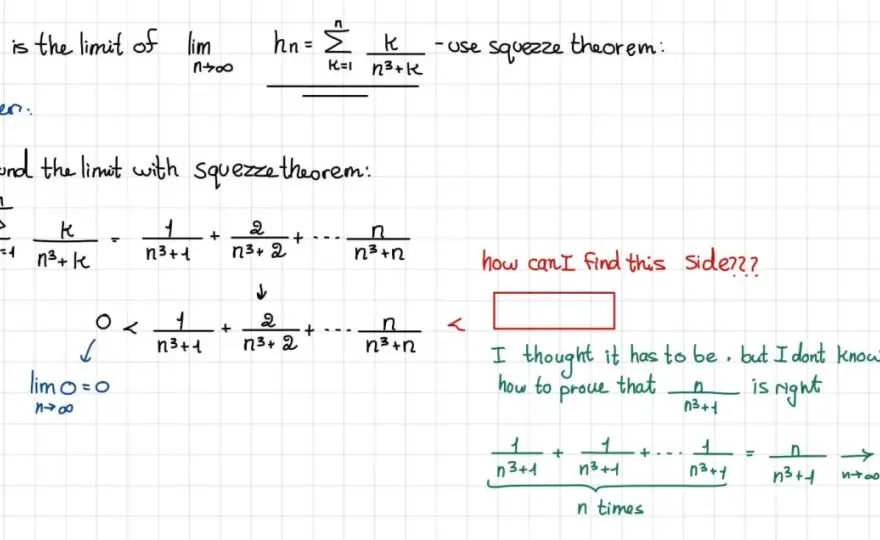 is the limit of lim n→∞ hn = n Σ k=1 k/(n³+k) - use squezze theorem:
en.
und the limit with squezze theorem:
n Σ =1 k/(n³+k) = 1/(n³+1) + 2/(n³+2) + ... n/(n³+n)
how can I find this side???
↓
0 < 1/(n³+1) + 2/(n³+2) + ... n/(n³+n) <
lim 0 = 0
n→∞
I thought it has to be, but I dont know
how to prove that n/(n³+1) is right
1/(n³+1) + 1/(n³+1) + ... 1/(n³+1) = n/(n³+1) → n→∞
n times